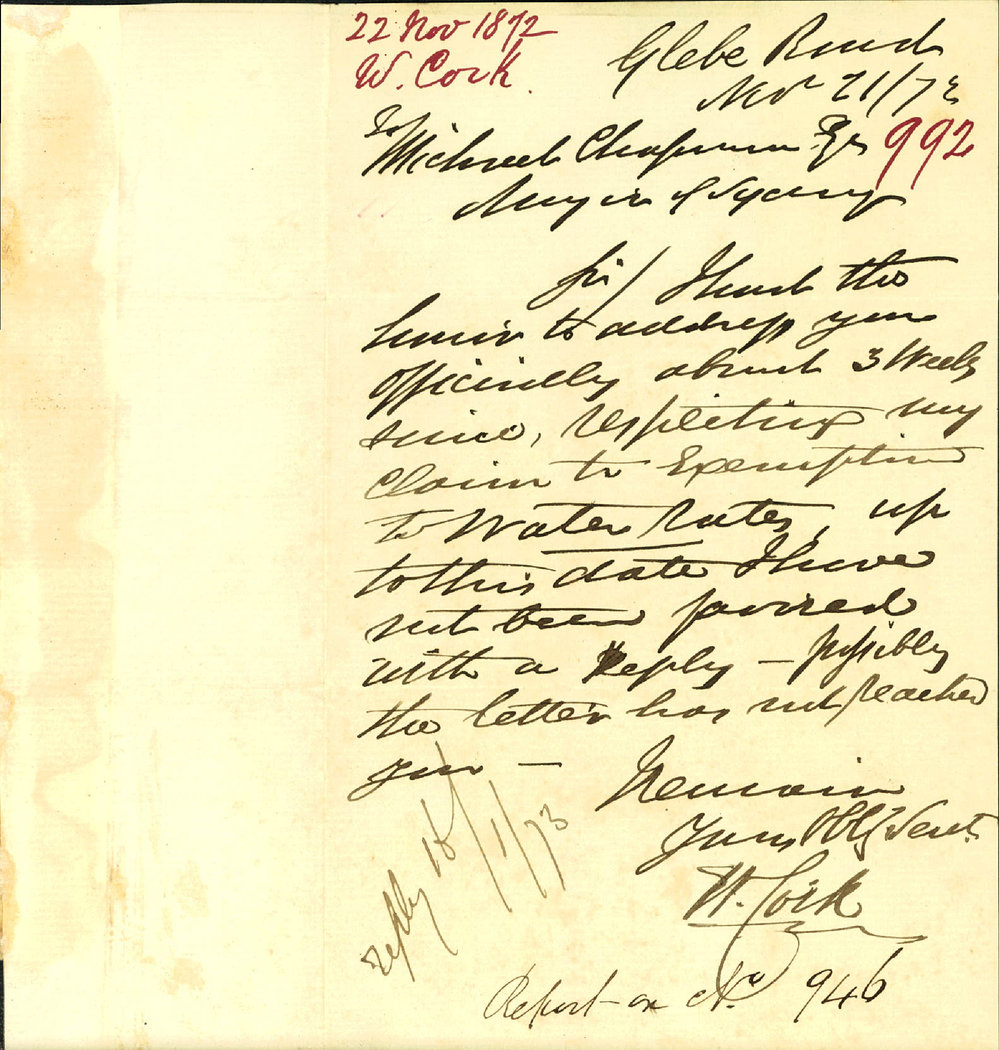 22 Nov 1872
W. Cork.
Glebe Road
Nov 21/72
992
To
Michael Chapman Esqr
Mayor of Sydney
Sir/ I had the
honor to address you
officially about 3 Weeks
since, respecting my
claim to Exemption
to Water Rates, up
to this date I have
not been favored
with a Reply — possibly
the letter has not reached
you —
I remain
Your Obt Servt
W. Cork
reply 18/1/73
Report on No 946